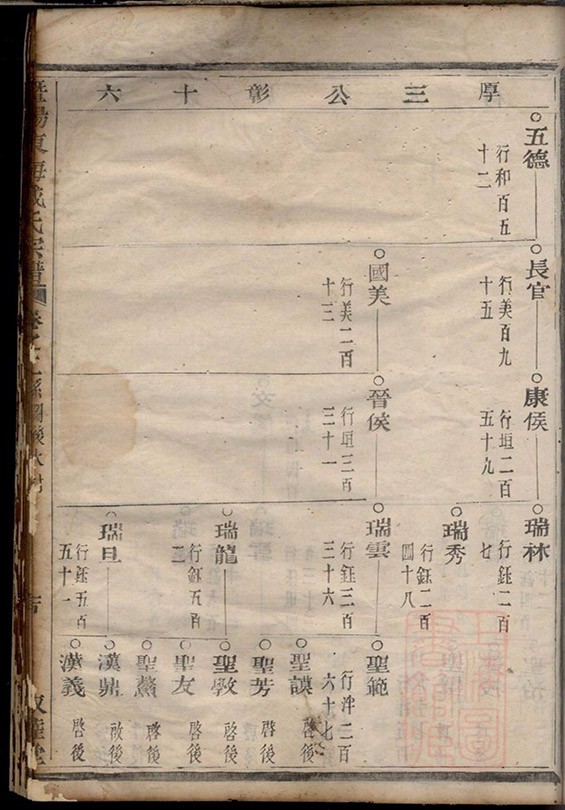 厚三公彰十六
五德
行和百五
十二
長官
行美百九
十五
國美
行美二百
十三
康侯
行垣二百
五十九
晉侯
行垣三百
三十一
瑞林
行鈺二百
七
瑞秀
行鈺二百
四十八
瑞雲
行鈺三百
三十六
瑞龍
行鈺五百
瑞旦
行鈺五百
五十一
聖範
行泮二百
六十七
聖謨
啓後
聖芳
啓後
聖教
啓後
聖友
啓後
聖鰲
啓後
漢鼎
啟後
漢義
啓後
暨陽東海戚氏宗譜